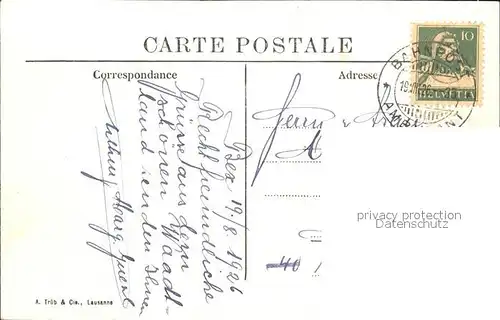 CARTE POSTALE
Correspondance
Adresse
10
HELVETIA
BAHNPOST
AMBULANT
Bex 19/8 1926
Recht freundliche
Grüsse aus dem
schönen Waadt-
land senden Ihnen
Herrn
40
privacy protection
watermark
A. Trüb & Cie., Lausanne